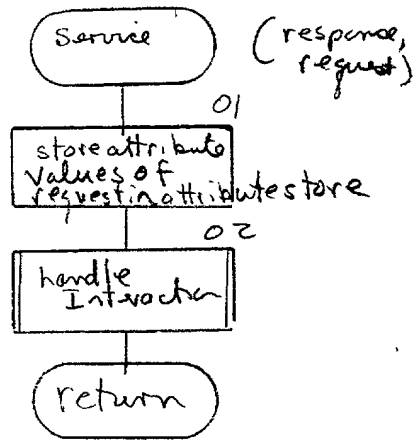 Service
(response,
request)
01
store attribute
values of
request in attribute store
02
handle
Interaction
return